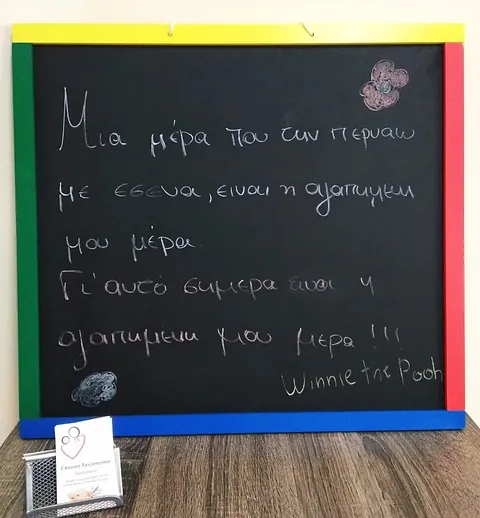 Μια μέρα που την περναω
με εσενα, ειναι η αγαπημενη
μου μέρα.
Γι' αυτό σημερα ειναι η
αγαπημενη μου μερα !!!
Winnie the Pooh